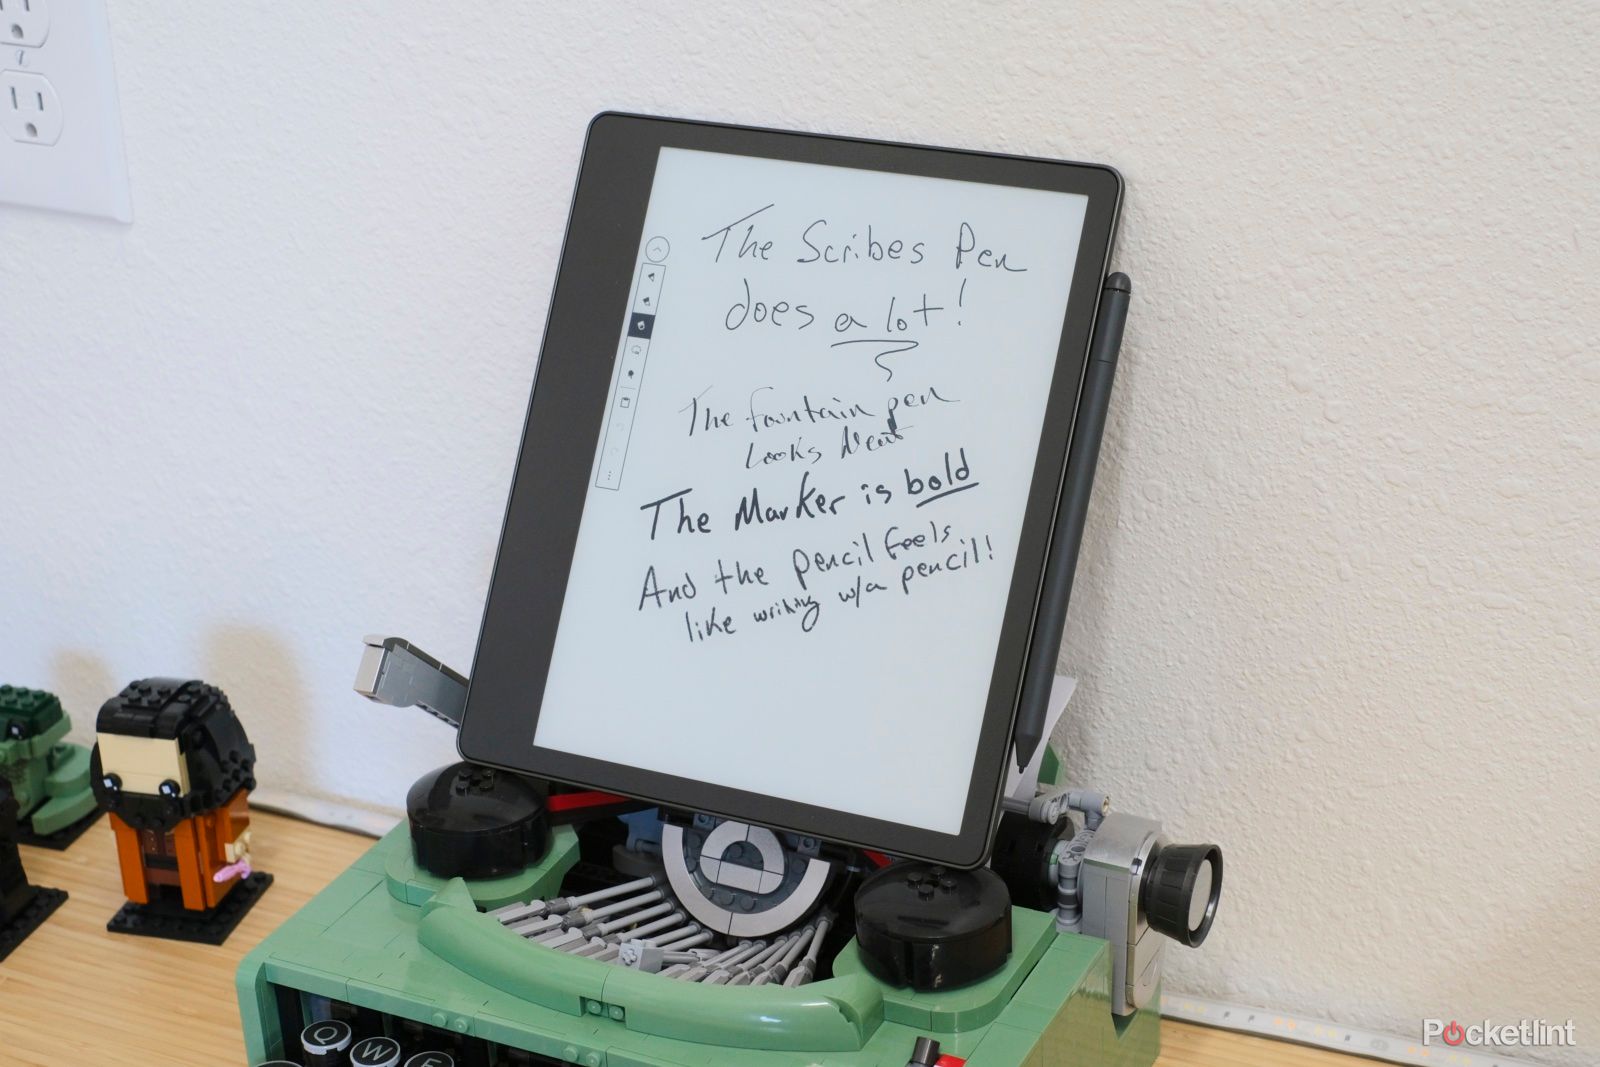 The Scribes Pen
does a lot!
The fountain pen
Looks Neat
The Marker is bold
And the pencil feels
like writing w/a pencil!
Q W E
Pocketlint